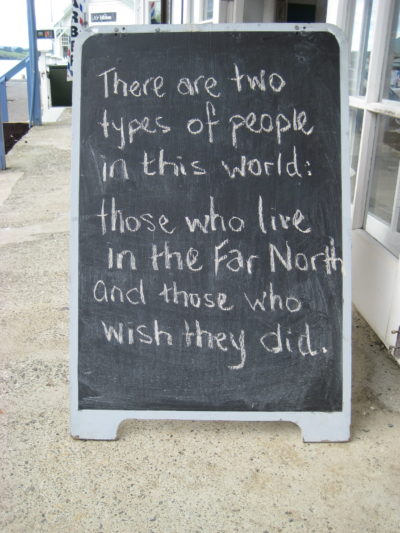 There are two
types of people
in this world:
those who live
in the Far North
and those who
wish they did.